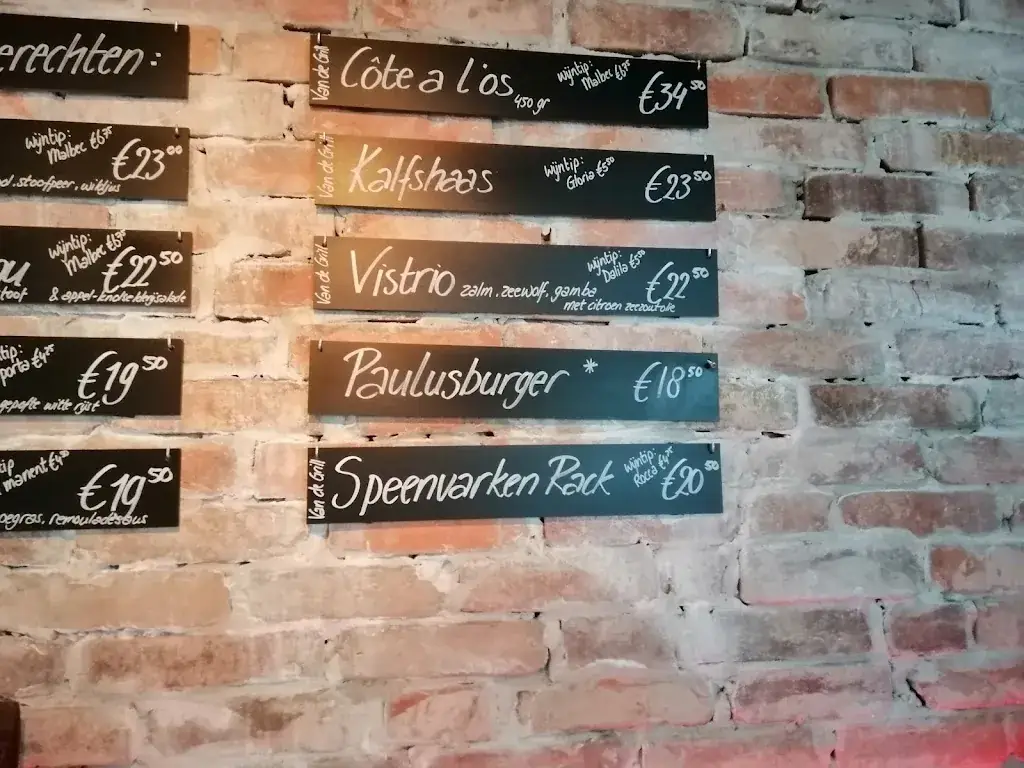 erechten:
wijntip:
Malbec €6,75
€23⁰⁰
stoofpeer, wildjus
wijntip:
Malbec €6,75
€22⁵⁰
& appel-knolselderijsalade
tip:
porta €4,75
€19⁵⁰
gepofte witte rijst
€19⁵⁰
remouladesaus
Van de Grill
Côte a l'os
450 gr
wijntip:
Malbec €6,75
€34⁵⁰
Van de Grill
Kalfshaas
wijntip:
Gloria €5,50
€23⁵⁰
Van de Grill
Vistrio zalm, zeewolf, gamba
met citroen zeezoutolie
wijntip:
Dalila €5,50
€22⁵⁰
Paulusburger *
€18⁵⁰
Van de Grill
Speenvarken Rack
wijntip:
Rocca €4,75
€20⁵⁰